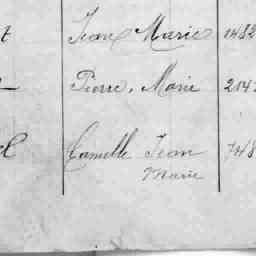 t Jean Marie 1482
Pierre, Marie 214
Camille Jean 748
Marie